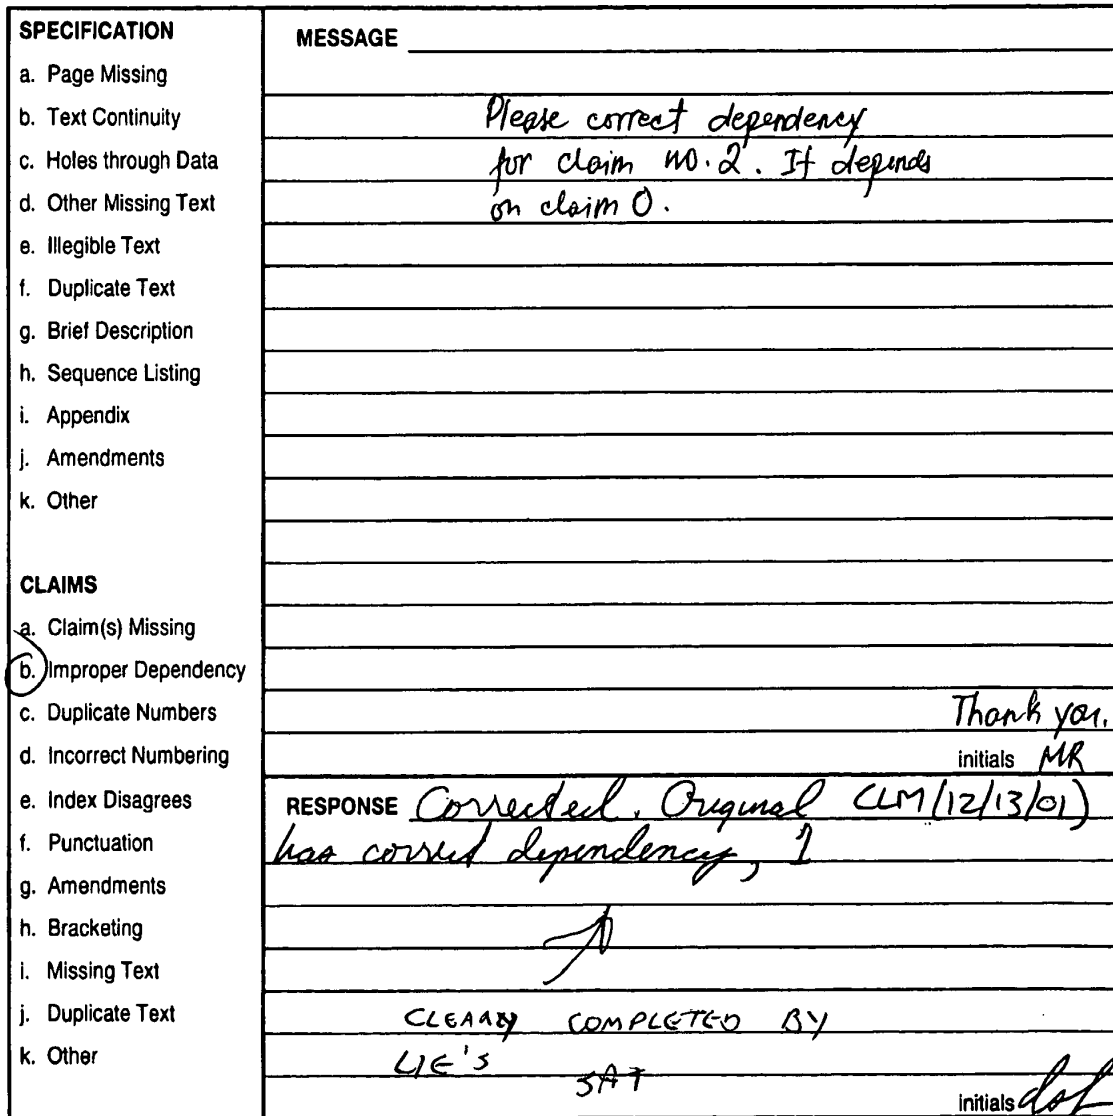 SPECIFICATION
a. Page Missing
b. Text Continuity
c. Holes through Data
d. Other Missing Text
e. Illegible Text
f. Duplicate Text
g. Brief Description
h. Sequence Listing
i. Appendix
j. Amendments
k. Other
CLAIMS
a. Claim(s) Missing
b. Improper Dependency
c. Duplicate Numbers
d. Incorrect Numbering
e. Index Disagrees
f. Punctuation
g. Amendments
h. Bracketing
i. Missing Text
j. Duplicate Text
k. Other
MESSAGE
Please correct dependency
for claim no. 2. It depends
on claim 0.
Thank you.
initials MR
RESPONSE Corrected. Original CLM (12/13/01)
has correct dependency, 1
COMPLETED BY
LIE'S
initials